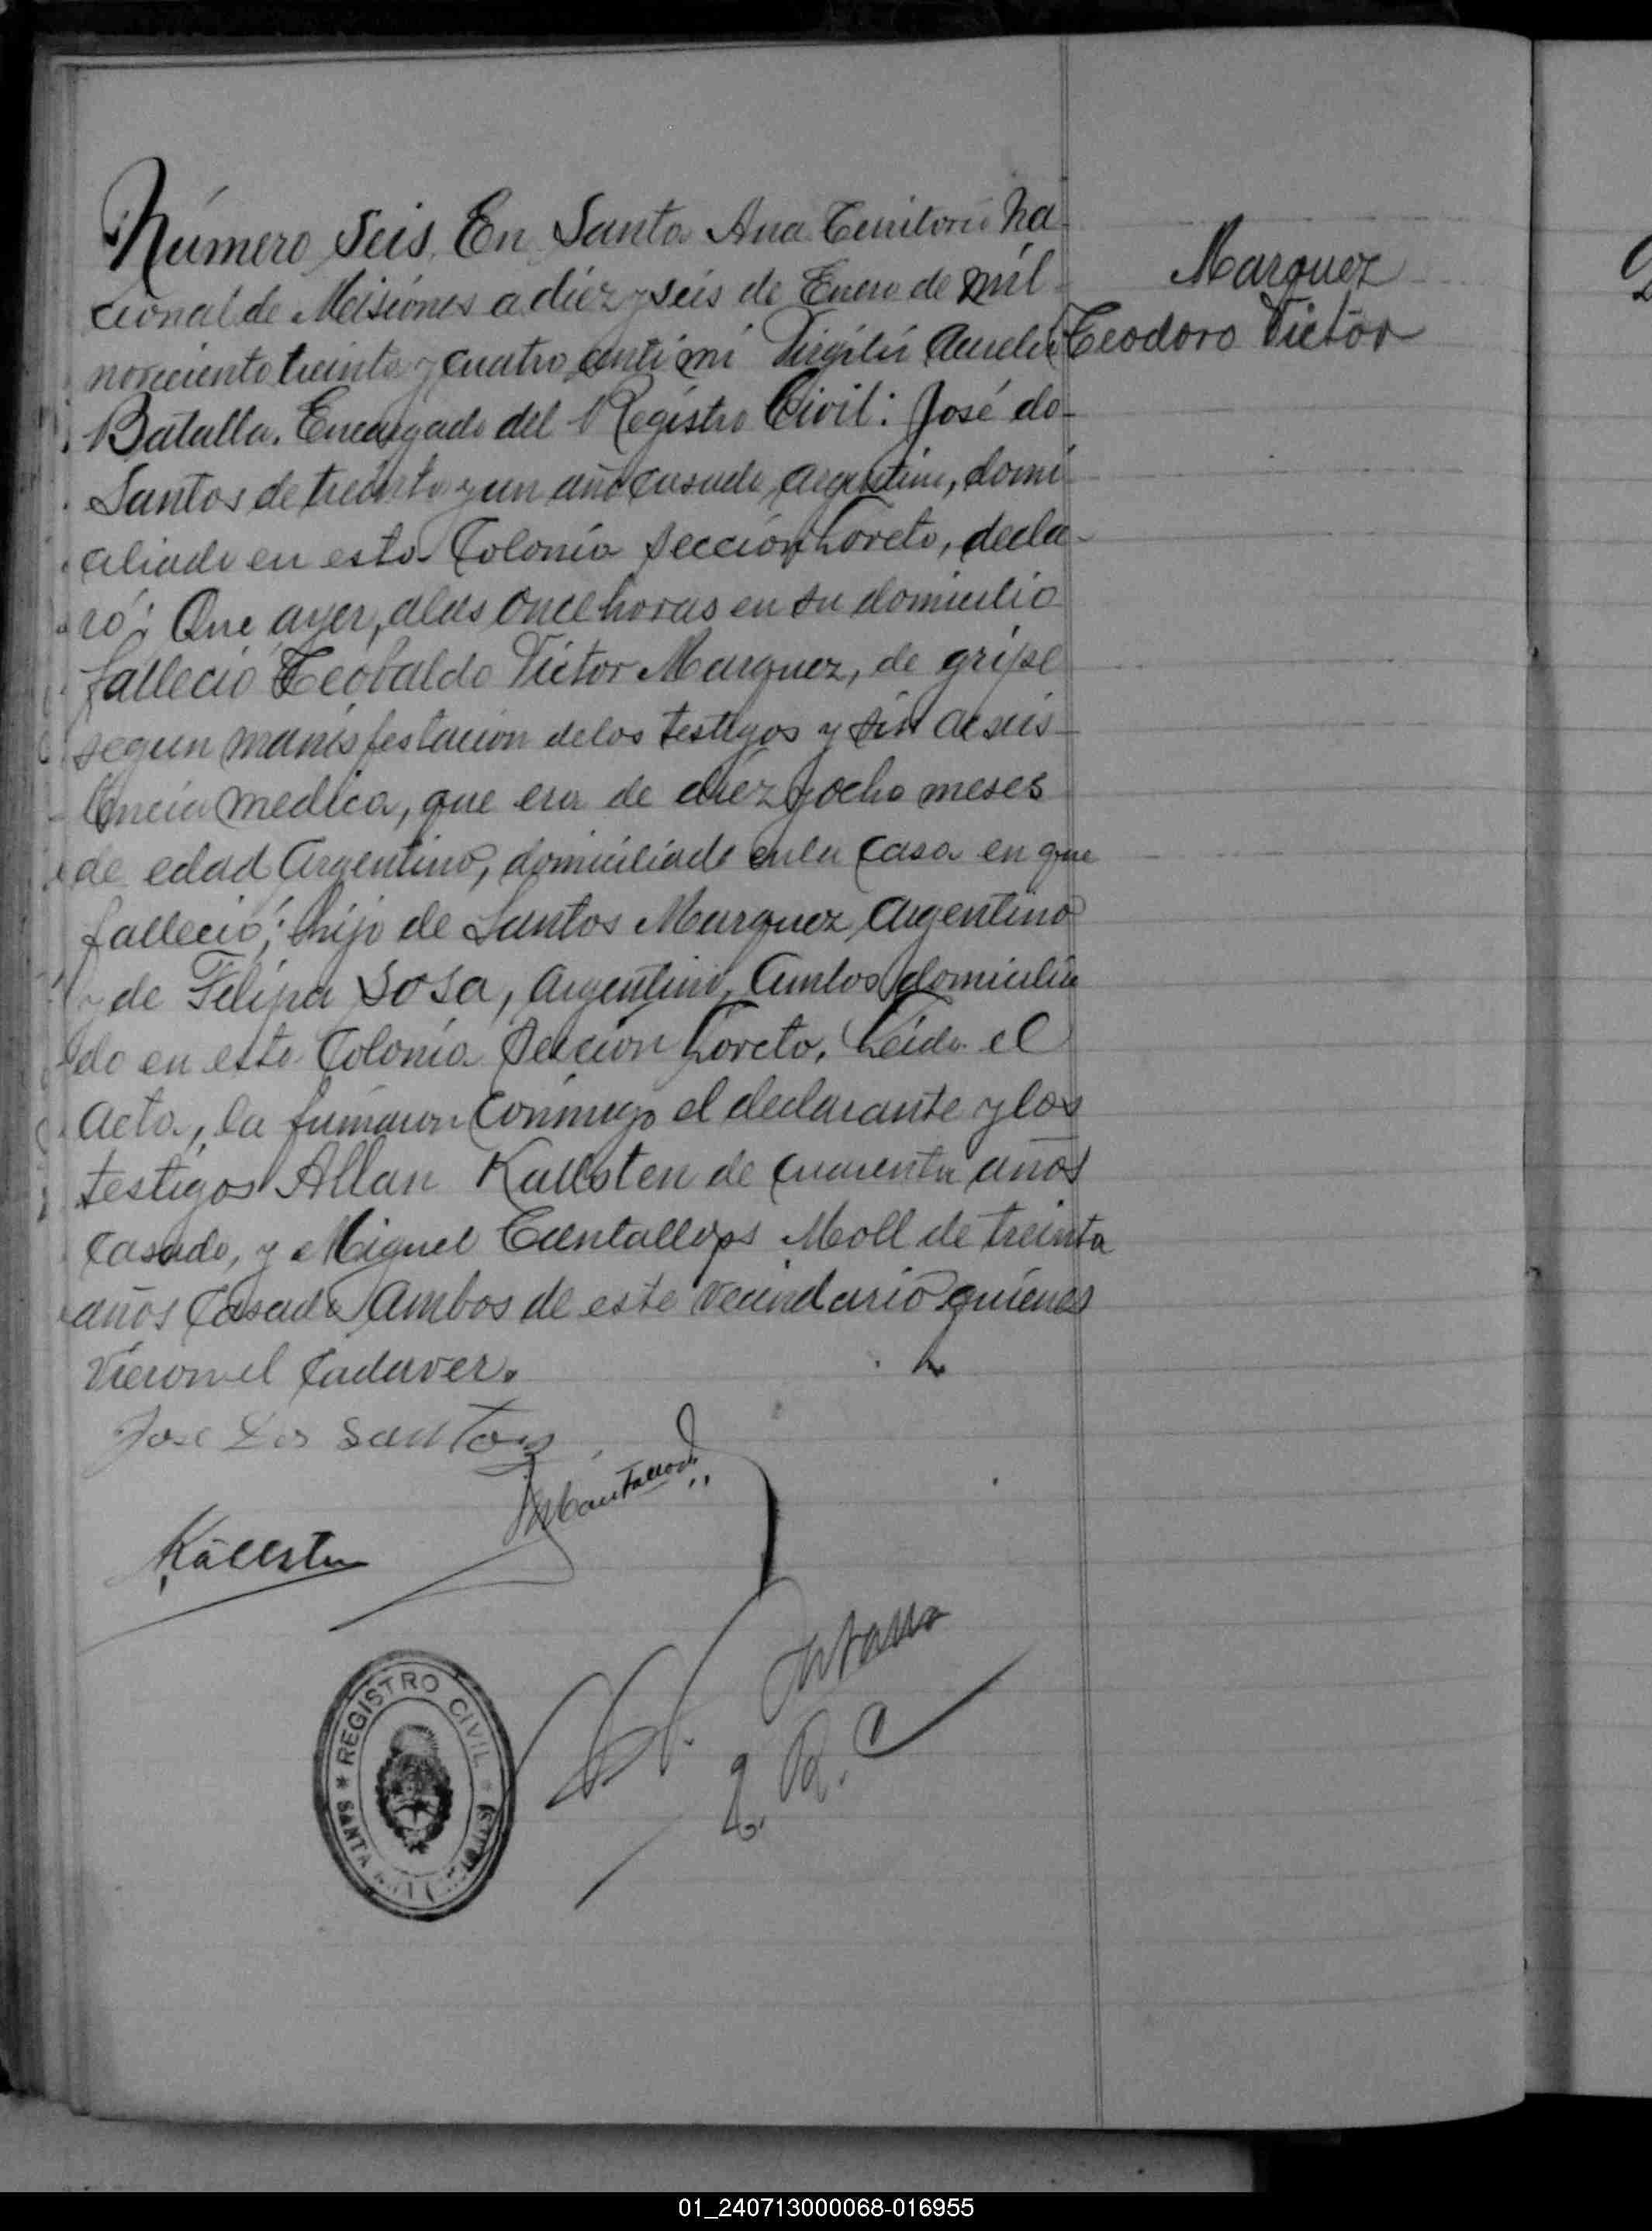 Número Seis. En Santa Ana Territorio Na-
cional de Misiones a diez y seis de Enero de mil
noveciento treinta y cuatro, ante mí Virgilio Aurelio
Batalla. Encargado del Registro Civil: José do-
Santos de treinta y un año casado, argentino, domi-
ciliado en esta Colonia Sección Loreto, decla-
ró: Que ayer, a las once horas en su domicilio
falleció Teobaldo Victor Marquez, de gripe
segun manisfestación de los testigos y sin
medica, que era de diez y ocho meses
de edad Argentino, domiciliado en la casa en que
falleció; hijo de Santos Marquez, Argentino
y de Felipa Sosa, Argentina, Ambos domicilia
do en esta Colonia Sección Loreto. Leida el
Acta, la firmaron conmigo el declarante y los
testigos Allan Kallsten de cuarenta años
casado, y Miguel Cantallops Moll de treinta
años Casado Ambos de este vecindario quienes
Vieron el Cadaver.
Marquez
Teodoro Victor
Jose Dos Santos
Källsten
E. R. C
REGISTRO CIVIL
SANTA
01_240713000068-016955